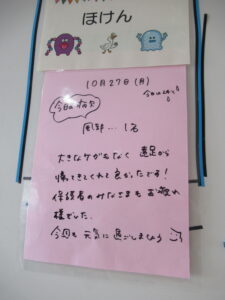 ほけん
10月27日(月)
今日の病欠
風邪… 1名
大きなケガもなく 遠足から
帰ってきてくれて良かったです!
保護者のみなさまも お疲れ
様でした。
今週も 元気に 過ごしましょう